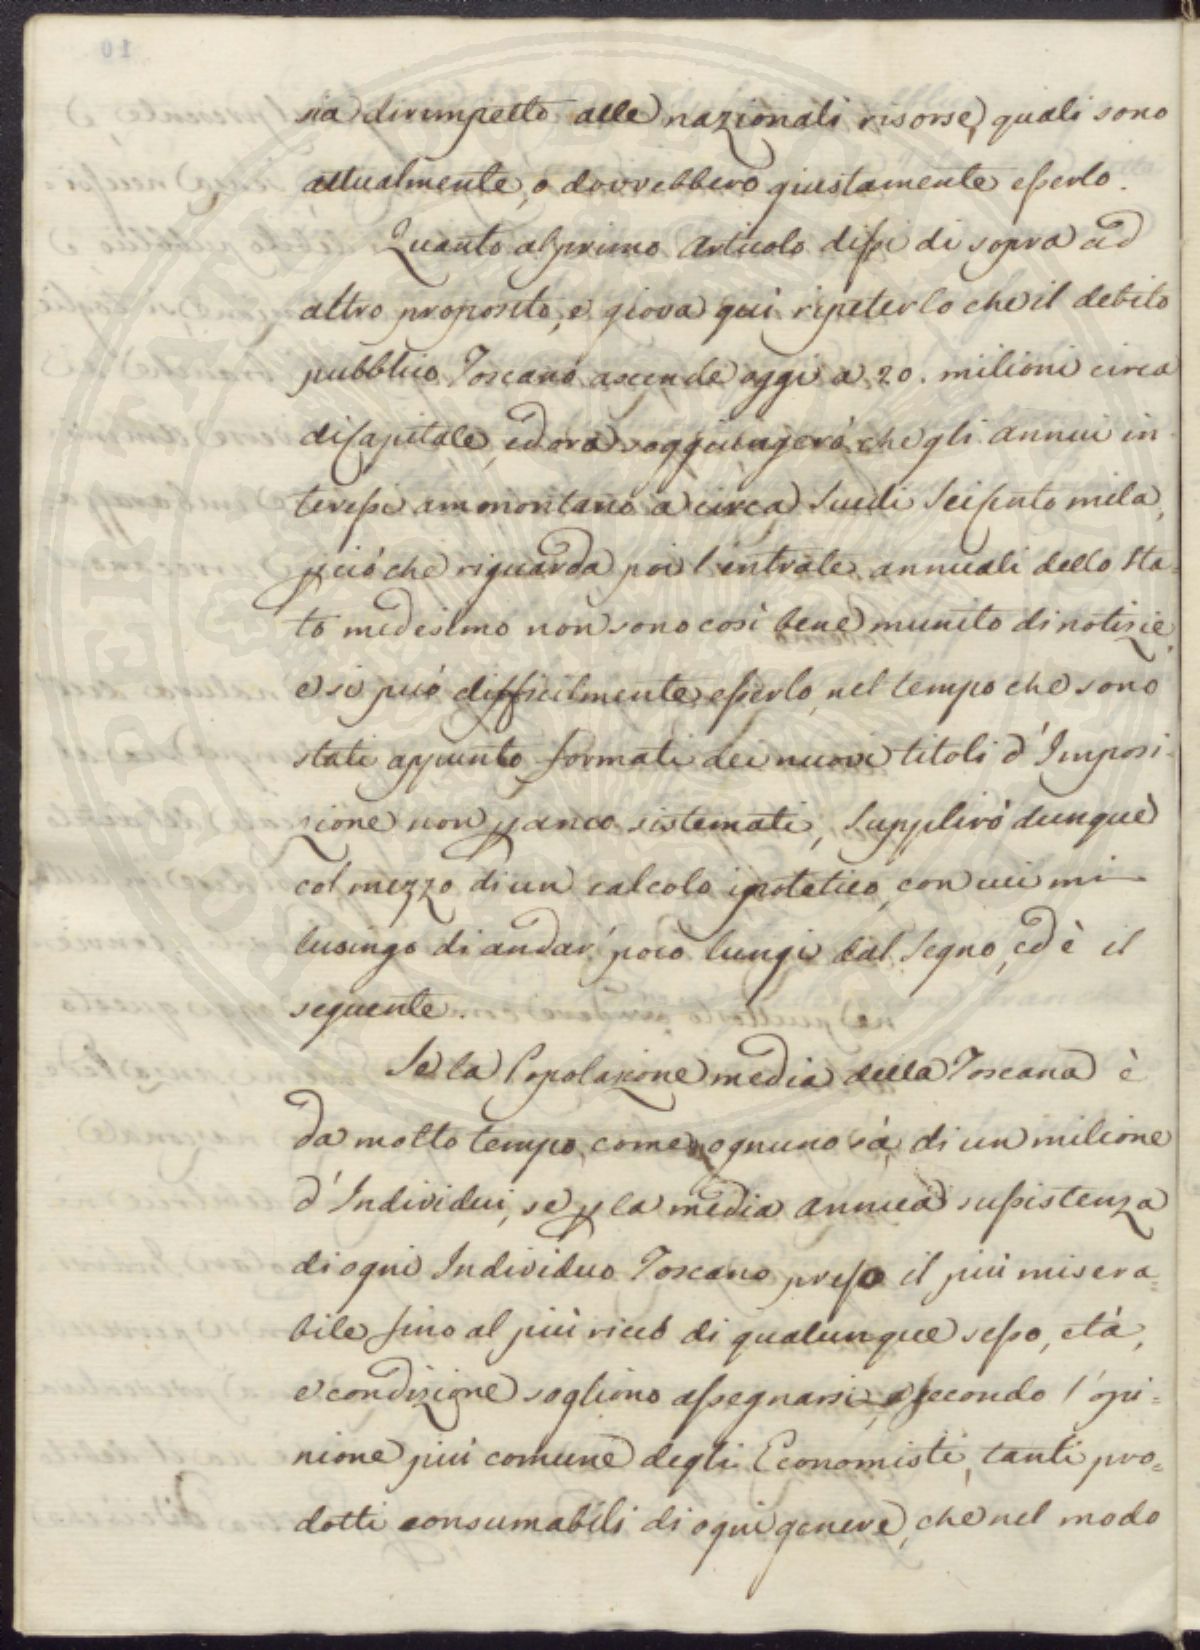 sia dirimpetto alle nazionali risorse, quali sono
attualmente, o dovrebbero giustamente esserlo.
Quanto al primo Articolo dissi di sopra ad
altro proposito, e giova quì ripeterlo che il debito
pubblico Toscano ascende oggi a 20. milioni circa
di Capitale, ed ora soggiungerò, che gli annui in
teressi ammontano a circa Scudi Seicento mila,
pciò che riguarda poi l'entrate annuali dello Sta=
to medesimo non sono così bene munito di notizie,
e si può difficilmente esserlo, nel tempo che sono
stati appunto formati dei nuovi titoli d'Imposi=
zione non p anco sistemati, Supplirò dunque
col mezzo di un calcolo ipotetico, con cui mi
lusingo di andar' poco lungi dal Segno, ed è il
seguente.
Se la Popolazione media della Toscana è
da molto tempo, come ognuno sà, di un milione
d'Individui, se p la media annua sussistenza
di ogni Individuo Toscano preso il più misera=
bile fino al più ricco di qualunque sesso, età,
e condizione sogliono assegnarsi, secondo l'opi=
nione più comune degli Economisti, tanti pro=
dotti consumabili di ogni genere, che nel modo